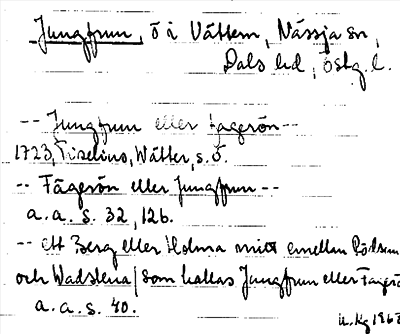 Jungfrun, ö i Vättern, Nässja sn,
Dals hd, Östg. l.
-- Jungfrun eller Fagerön --
1723, Tiselius, Wätter, s. 5.
-- Fägerön eller Jungfrun --
a. a. s. 32, 126.
-- ett Berg eller Holma mitt emellan
och Wadstena/som kallas Jungfrun eller
a. a. s. 40.